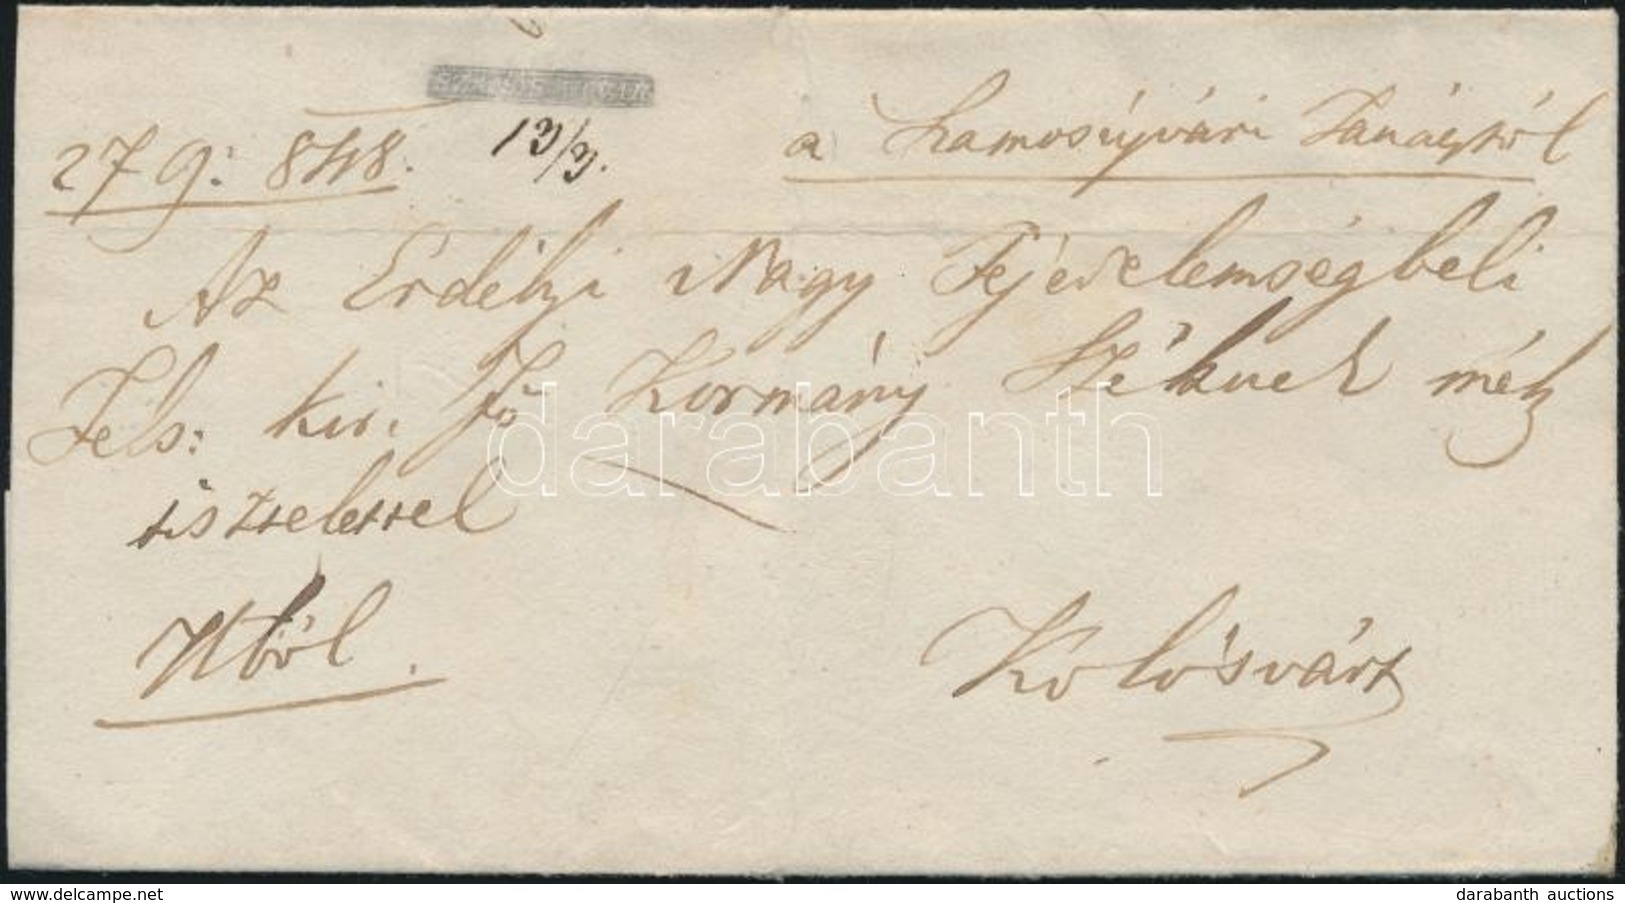 27 9: 848. 13/9. a Szamosújvári Tanáɥtól
Az Erdélyi Nagy Fejedelemségbeli
Fels: kir. Fő Kormány Széknek mély
tisztelettel
Kolósvárt
darabanth
darabanth auctions